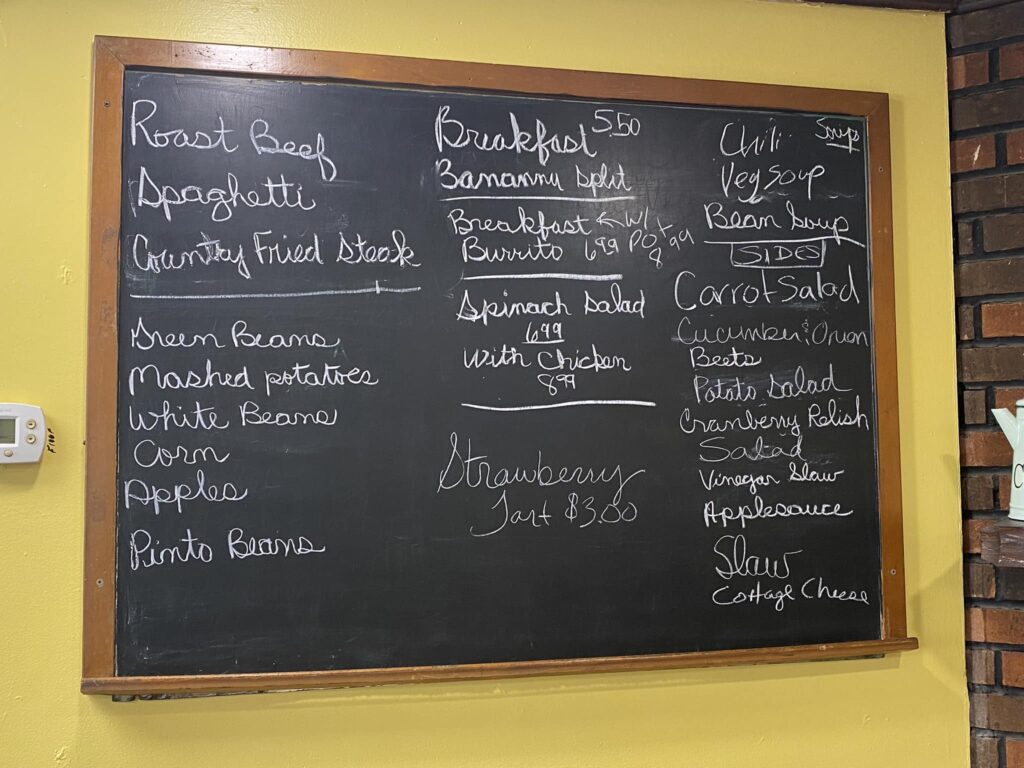 Roast Beef
Spaghetti
Country Fried Steak
Green Beans
Mashed potatoes
White Beans
Corn
Apples
Pinto Beans
Breakfast 5.50
Bananna Split
Breakfast ← W/
Burrito 6.99 POT
8.99
Spinach Salad
6.99
With Chicken
8.99
Strawberry
Tart $3.00
Soup
Chili
Veg Soup
Bean Soup
SIDES
Carrot Salad
Cucumber & Onion
Beets
Potato Salad
Cranberry Relish
Salad
Vinegar Slaw
Applesauce
Slaw
Cottage Cheese